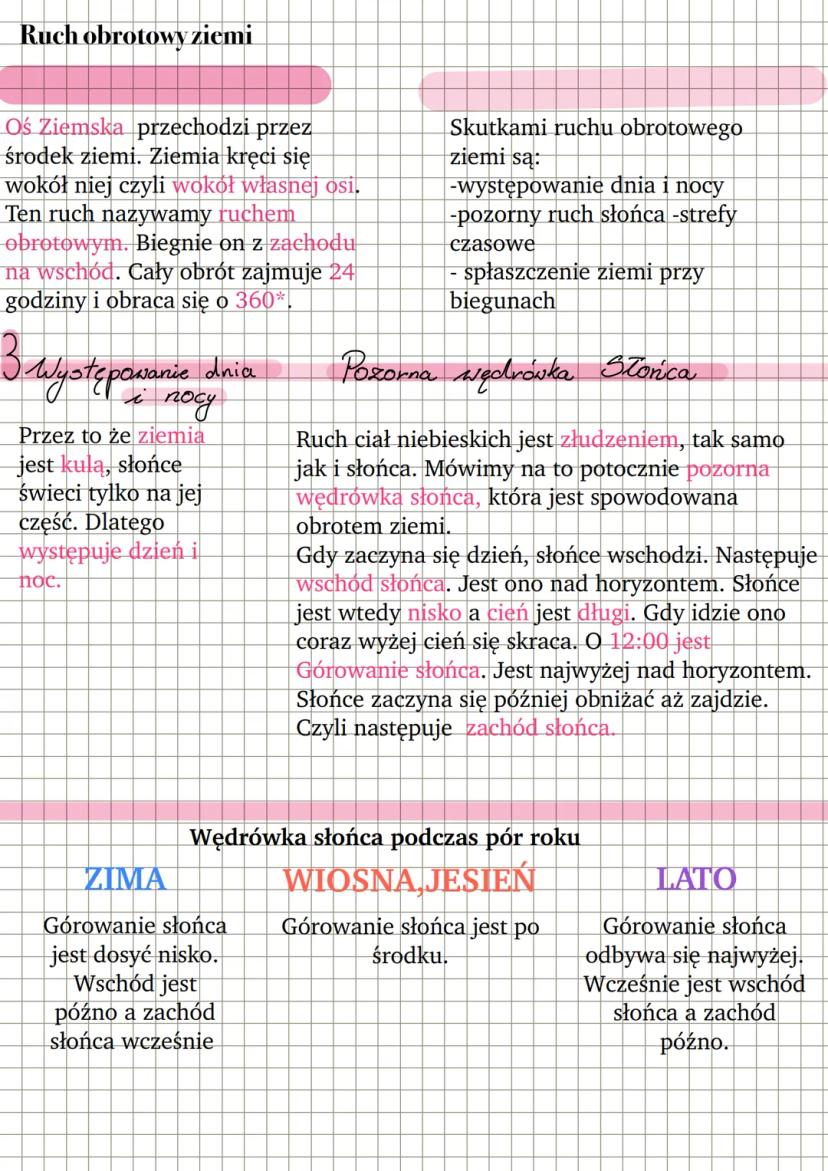 Ruch obrotowy ziemi
Oś Ziemska przechodzi przez
środek ziemi. Ziemia kręci się
wokół niej czyli wokół własnej osi.
Ten ruch nazywamy ruchem
obrotowym. Biegnie on z zachodu
na wschód. Cały obrót zajmuje 24
godziny i obraca się o 360*.
Skutkami ruchu obrotowego
ziemi są:
-występowanie dnia i nocy
-pozorny ruch słońca -strefy
czasowe
- spłaszczenie ziemi przy
biegunach
3 Występowanie dnia
i nocy
Przez to że ziemia
jest kulą, słońce
świeci tylko na jej
część. Dlatego
występuje dzień i
noc.
Pozorna wędrówka Słońca
Ruch ciał niebieskich jest złudzeniem, tak samo
jak i słońca. Mówimy na to potocznie pozorna
wędrówka słońca, która jest spowodowana
obrotem ziemi.
Gdy zaczyna się dzień, słońce wschodzi. Następuje
wschód słońca. Jest ono nad horyzontem. Słońce
jest wtedy nisko a cień jest długi. Gdy idzie ono
coraz wyżej cień się skraca. O 12:00 jest
Górowanie słońca. Jest najwyżej nad horyzontem.
Słońce zaczyna się później obniżać aż zajdzie.
Czyli następuje zachód słońca.
Wędrówka słońca podczas pór roku
ZIMA
Górowanie słońca
jest dosyć nisko.
Wschód jest
późno a zachód
słońca wcześnie
WIOSNA,JESIEŃ
Górowanie słońca jest po
środku.
LATO
Górowanie słońca
odbywa się najwyżej.
Wcześnie jest wschód
słońca a zachód
późno.